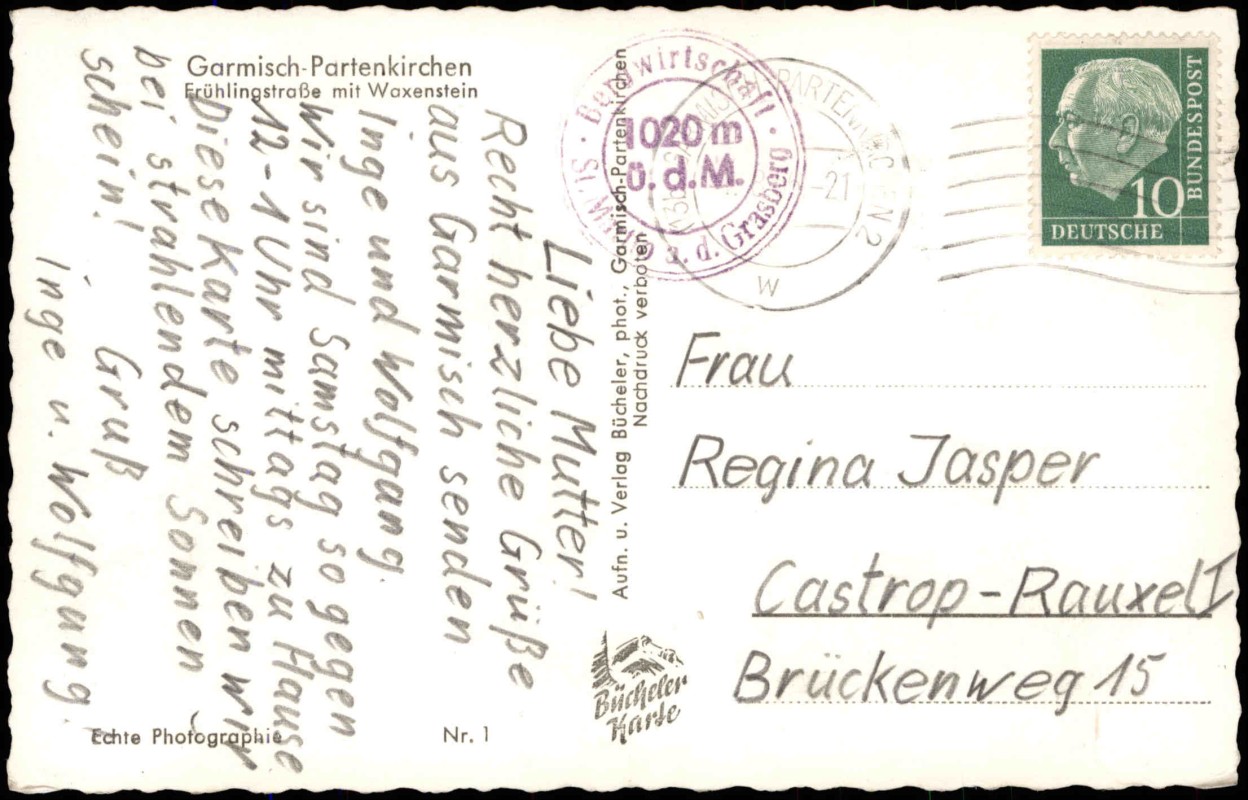 Garmisch-Partenkirchen
Frühlingstraße mit Waxenstein
Liebe Mutter!
Recht herzliche Grüße
aus Garmisch senden
Inge und Wolfgang.
Wir sind Samstag so gegen
12-1 Uhr mittags zu Hause
Diese Karte schreiben wir
bei strahlendem Sonnen
schein!
Gruß
Inge u. Wolfgang.
Echte Photographie
Nr. 1
Aufn. u. Verlag Bücheler, phot., Garmisch-Partenkirchen
Nachdruck verboten
Bücheler
Karte
Bergwirtschaft
1020 m
ü. d. M.
St. Martin a. d. Grasberg
-21
w
10
BUNDESPOST
DEUTSCHE
Frau
Regina Jasper
Castrop-Rauxel I
Brückenweg 15